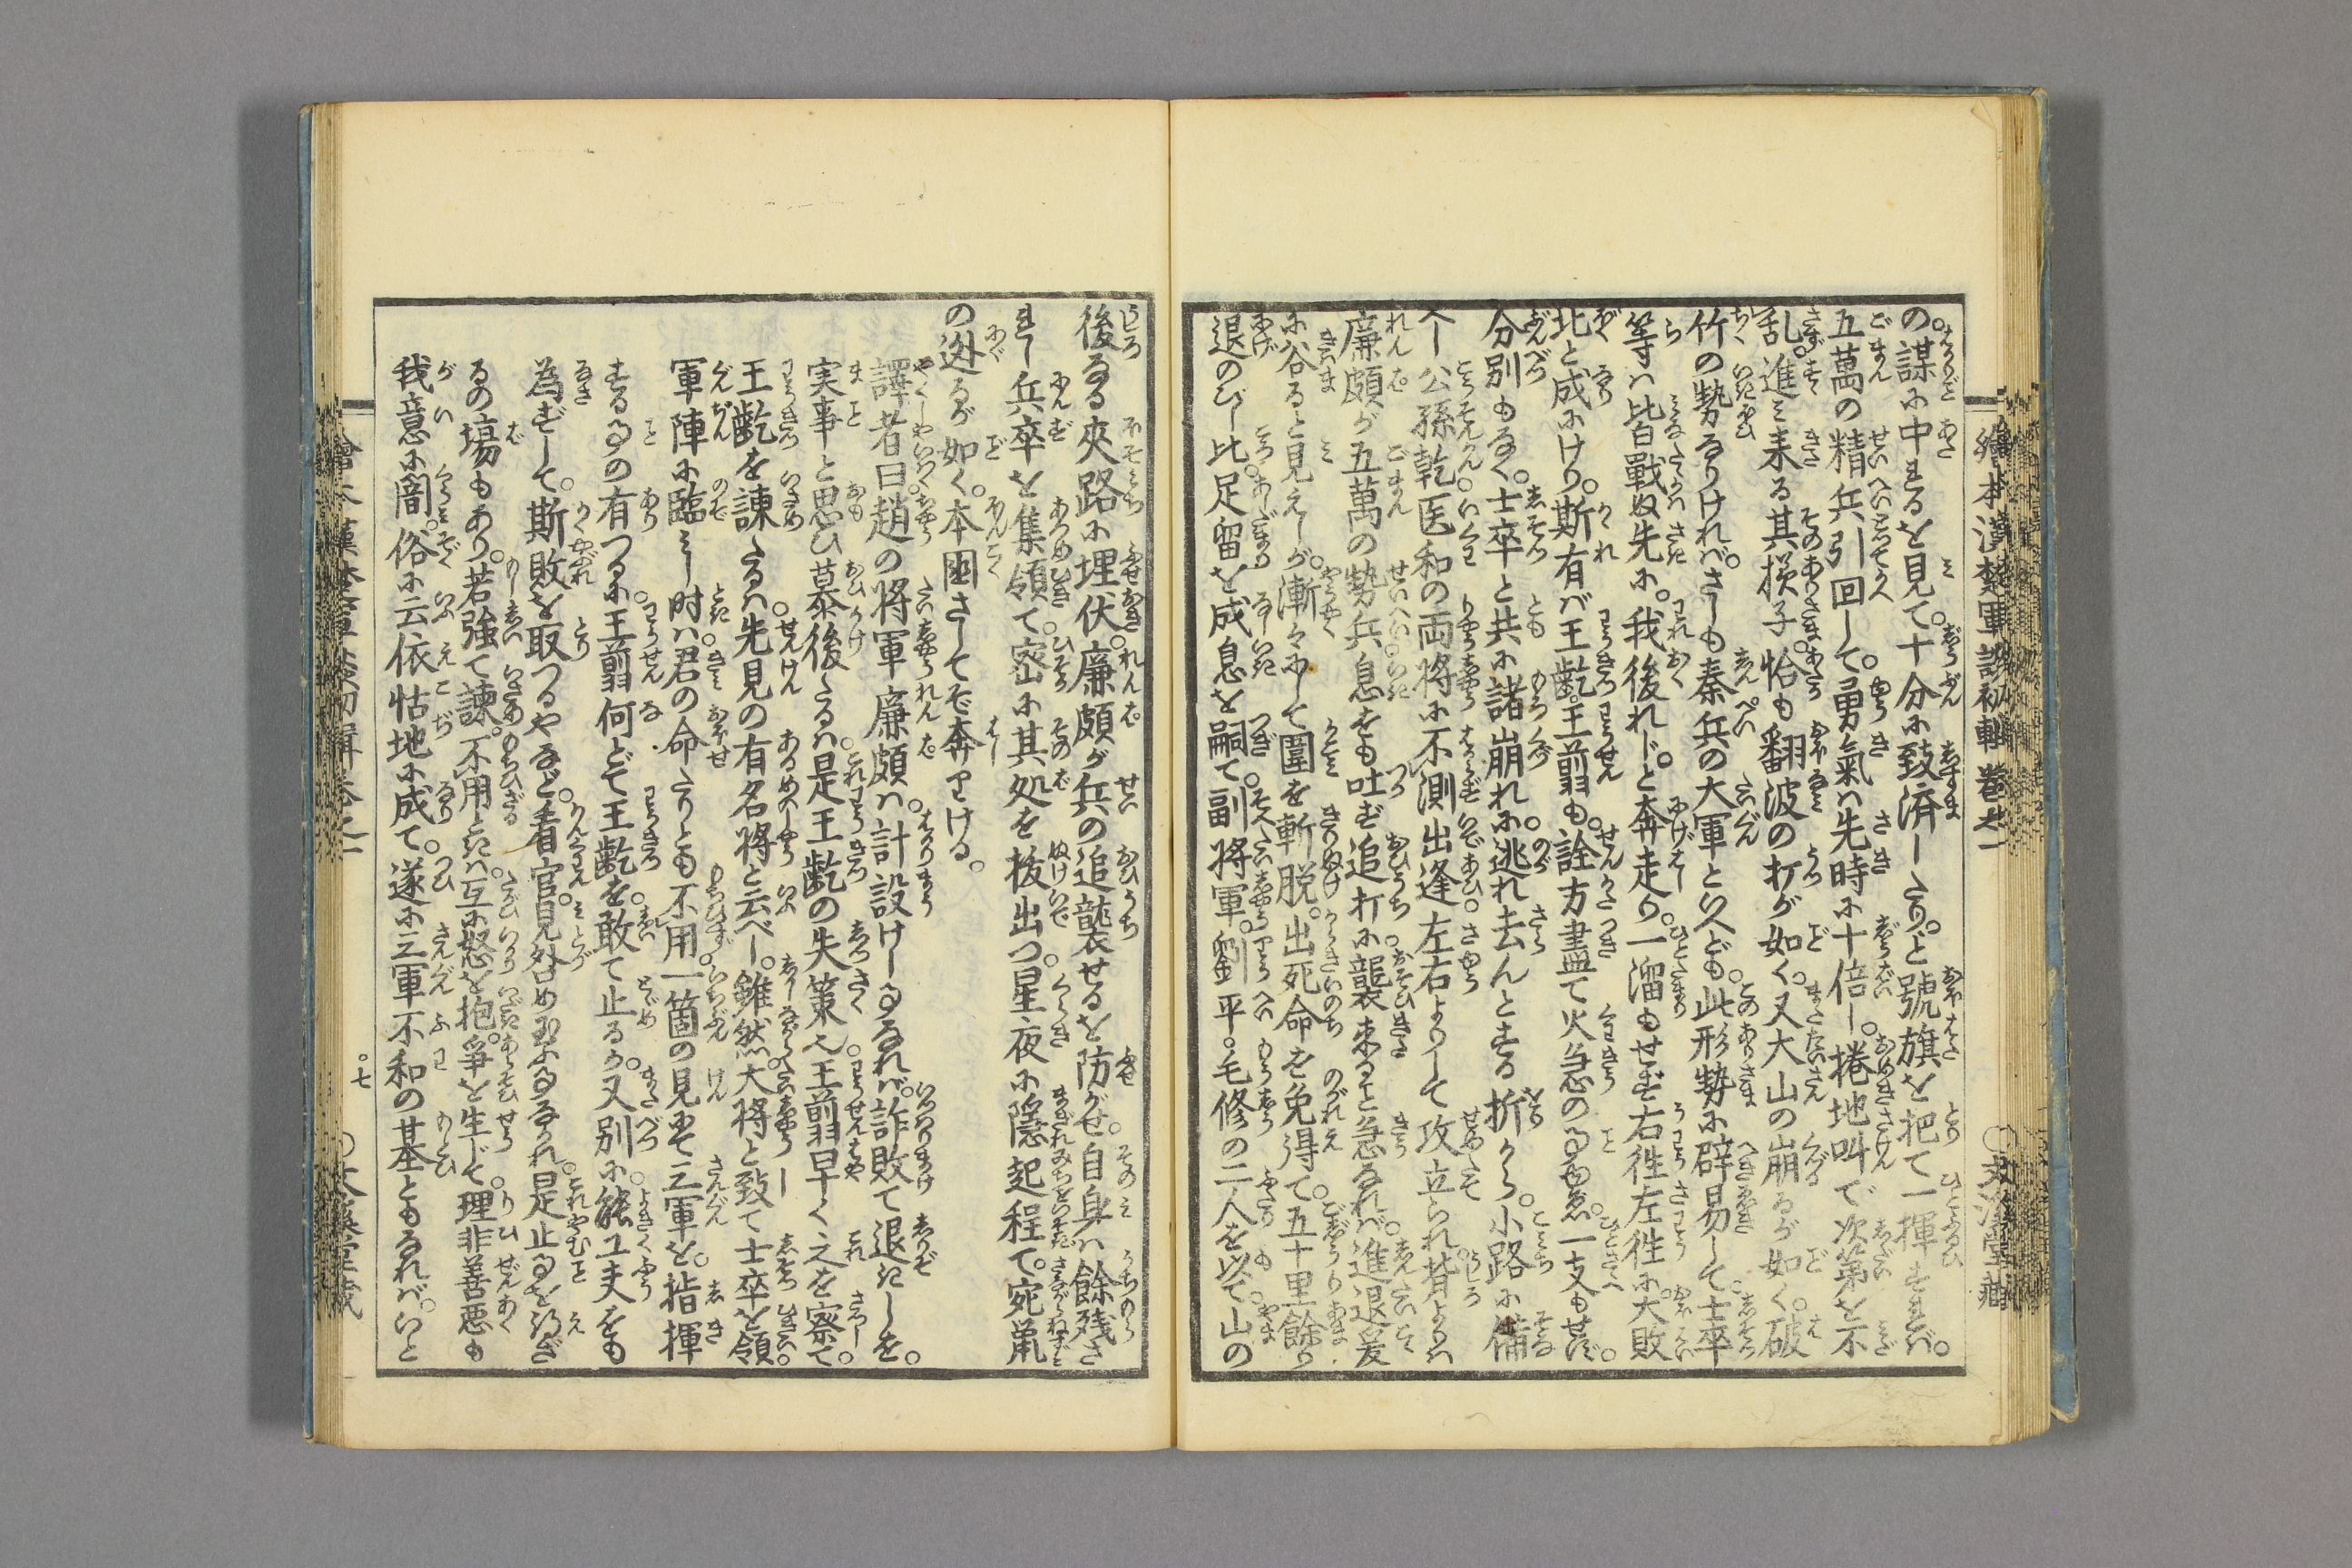 繪本漢楚軍談初輯卷之一
の謀に中れるを見て。十分に致済したり。と號旗を把て一揮すれば。
五萬の精兵引回して。勇氣は先時に十倍し。捲地叫で次第を不
乱。進み来る其模子。恰も翻波の打が如く。又大山の崩るが如く。破
竹の勢なりければ。さしも秦兵の大軍といへども。此形勢に辟易して。士卒
等は皆戰ぬ先に。我後れじ。と奔走り。一溜もせず右徃左徃に。大敗
北と成にけり。斯有ば王齕王翦も。詮方盡て火急の事ゆゑ。一支もせず。
分別もなく。士卒と共に諸崩れに。逃れ去んとする折から。小路に備
へし公孫乾医和の両将に不測出逢。左右よりして攻立られ。背よりは
廉頗が五萬の勢兵。息をも吐ず追打に。襲来ると急なれば。進退爰
に谷ると見えしが。漸々にして圍を斬脱。出死命を免得て。五十里餘り
退のびし比。足留を成息を嗣て。副将軍。劉平。毛修の二人を以て。山の
後なる夾路に埋伏。廉頗が兵の追襲せるを防がせ。自身は餘残さ
れし兵卒を集領て。密に其処を抜出つ。星夜に隠起程て。宛鼠
の迯るが如く。本國さしてぞ奔りける。
譯者曰。趙の将軍廉頗は。計設けし事なれば。詐敗て退きしを。
実事と思ひ慕後たるは。是王齕の失策也。王翦早く之を察て。
王齕を諫たるは。先見の有名将と云べし。雖然大将と致て士卒を領
軍陣に臨みし時は。君の命たりとも不用。一箇の見にて三軍を。指揮
する事の有つるに。王翦何どて王齕を。敢て止るか。又別に能工夫をも
為ずして。斯敗を取つるやなど。看官見咎め玉ふ事なかれ。是止事を得ざ
るの塲もあり。若強て諫。不用ときは。互に怒を抱。爭を生じて。理非善悪も
我意に闇。俗に云依怙地に成て。遂に三軍不和の基ともなれば。いと
七